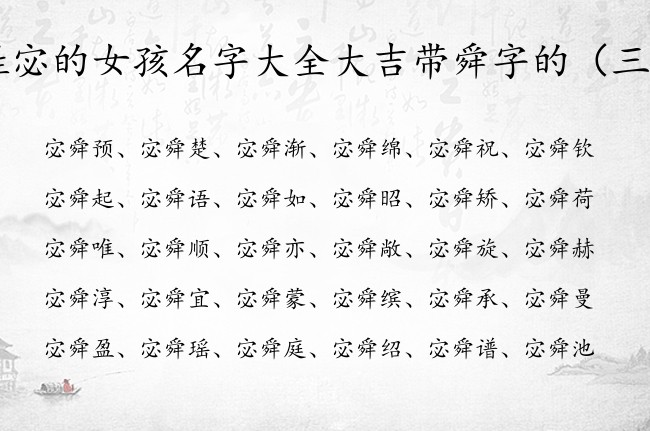 宓的女孩名字大全大吉带舜字的（三
宓舜预、宓舜楚、宓舜渐、宓舜绵、宓舜祝、宓舜钦
宓舜起、宓舜语、宓舜如、宓舜昭、宓舜矫、宓舜荷
宓舜唯、宓舜顺、宓舜亦、宓舜敞、宓舜旋、宓舜赫
宓舜淳、宓舜宜、宓舜蒙、宓舜缤、宓舜承、宓舜曼
宓舜盈、宓舜瑶、宓舜庭、宓舜绍、宓舜谱、宓舜池